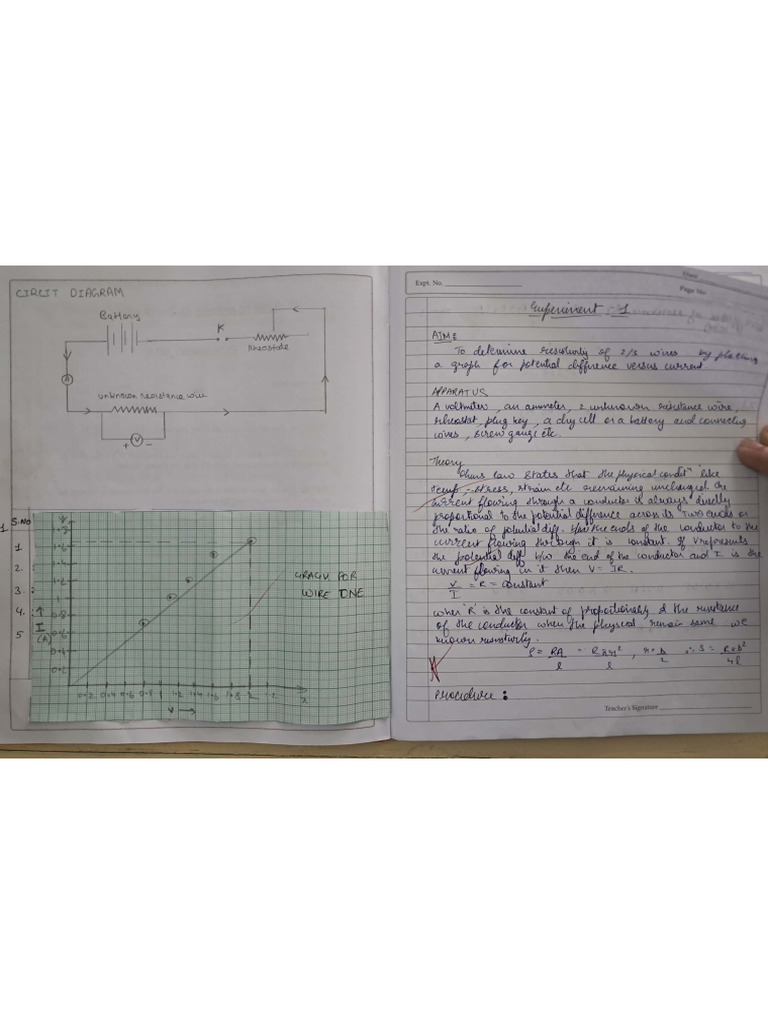 CIRCIT DIAGRAM
Battery
K
Rheostate
A
unknown resistance wire
+ V -
S.NO
1
1.
2.
3.
4.
5
y
1.8
1.6
1.4
1.2
1
0.8
0.6
0.4
0.2
I
(A)
GRAGV FOR
WIRE ONE
0.2 0.4 0.6 0.8 1 1.2 1.4 1.6 1.8 2 2.2 x
V →
Expt. No.
Date
Page No.
Experiment - 1
AIM:
To determine resistivity of 2/3 wires by plotting
a graph for potential difference versus current
APPARATUS
A voltmeter, an ammeter, 2 unknown resistance wire,
Rheostat, plug key, a dry cell or a battery and connecting
wires, screw gauge etc.
Theory
Ohms law states that the physical condit^n like
temp, stress, strain etc remaining unchanged the
current flowing through a conductor is always directly
proportional to the potential difference across its two ends or
the ratio of potential diff. b/w the ends of the conductor to the
current flowing through it is constant. If V represents
the potential diff b/w the end of the conductor and I is the
current flowing in it then V = IR.
V/I = R = constant
when 'R' is the constant of proportionality & the resistance
of the conductor when the physical remain same we
known resistivity.
ρ = RA/l = Rπr²/l , r = D/2
Procedure :
Teacher's Signature